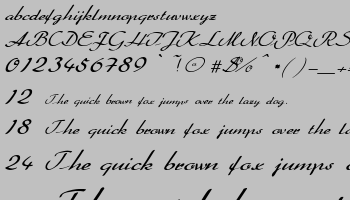 abcdefghijklmnopqrstuvwxyz
ABCDEFGHIJKLMNOPQRS
0123456789 ` ~ ! @ # $ % ^ * ( ) - _ + =
12 The quick brown fox jumps over the lazy dog.
18 The quick brown fox jumps over the la
24 The quick brown fox jumps